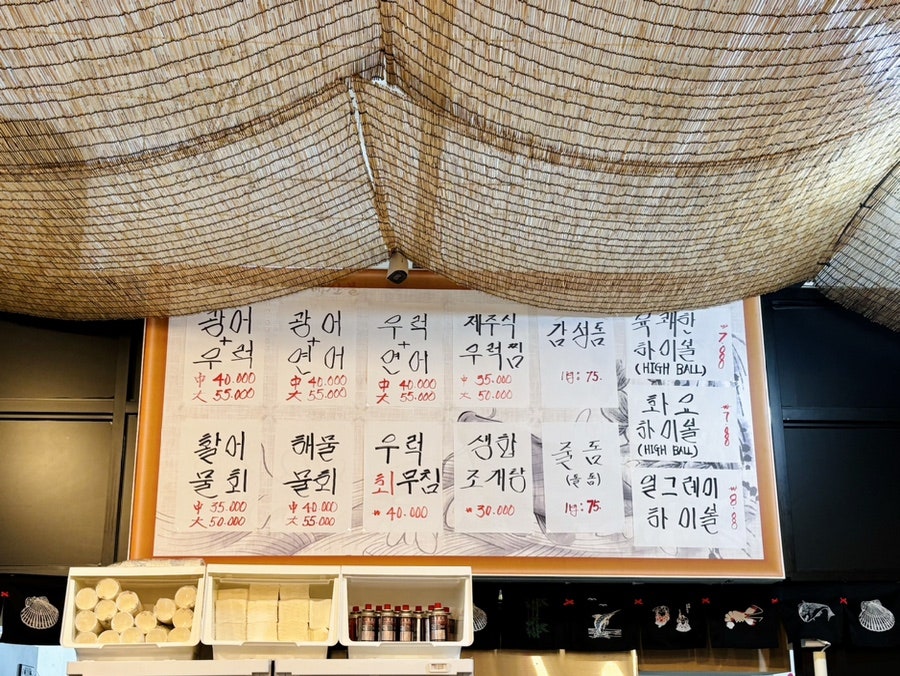 광어
+
우럭
中 40.000
大 55.000
광어
+
연어
中 40.000
大 55.000
우럭
+
연어
中 40.000
大 55.000
제주식
우럭찜
中 35.000
大 50.000
감성돔
1人: 75.
하이볼
(HIGH BALL)
화요
하이볼
(HIGH BALL)
얼그레이
하이볼
활어
물회
中 35.000
大 50.000
해물
물회
中 40.000
大 55.000
우럭
회무침
₩ 40.000
생합
조개탕
₩ 30.000
줄돔
(돌돔)
1人: 75.